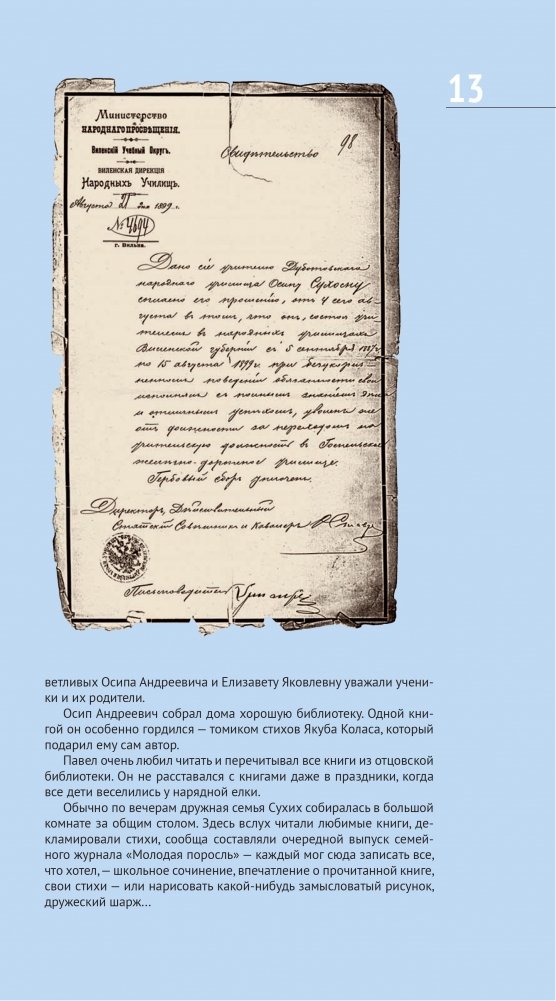 13
Министерство
НАРОДНАГО ПРОСВѢЩЕНІЯ.
Виленскій Учебный Округъ.
ВИЛЕНСКАЯ ДИРЕКЦІЯ
Народныхъ Училищъ.
Августа 21 дня 1899 г.
№ 4694
г. Вильна.
98
Свидѣтельство
Дано сіе учителю
народнаго училища Осипу Сухому
согласно его прошенію, отъ 4 сего ав-
густа въ томъ, что онъ, состоя учи-
телемъ въ народныхъ училищахъ
Виленской губерніи съ 5 сентября 1887 г.
по 15 августа 1899 г. при безукориз-
ненномъ поведеніи обязанности свои
исполнялъ съ полнымъ знаніемъ дѣла
и отличнымъ успѣхомъ, уволенъ
отъ должности за переходомъ на
учительскую должность въ Гомельское
желѣзно-дорожное училище.
Гербовый сборъ уплоченъ.
Директоръ, Дѣйствительный
Статскій Совѣтникъ и Кавалеръ
Письмоводитель
ветливых Осипа Андреевича и Елизавету Яковлевну уважали учени-
ки и их родители.
Осип Андреевич собрал дома хорошую библиотеку. Одной кни-
гой он особенно гордился — томиком стихов Якуба Коласа, который
подарил ему сам автор.
Павел очень любил читать и перечитывал все книги из отцовской
библиотеки. Он не расставался с книгами даже в праздники, когда
все дети веселились у нарядной елки.
Обычно по вечерам дружная семья Сухих собиралась в большой
комнате за общим столом. Здесь вслух читали любимые книги, де-
кламировали стихи, сообща составляли очередной выпуск семей-
ного журнала «Молодая поросль» — каждый мог сюда записать все,
что хотел, — школьное сочинение, впечатление о прочитанной книге,
свои стихи — или нарисовать какой-нибудь замысловатый рисунок,
дружеский шарж...